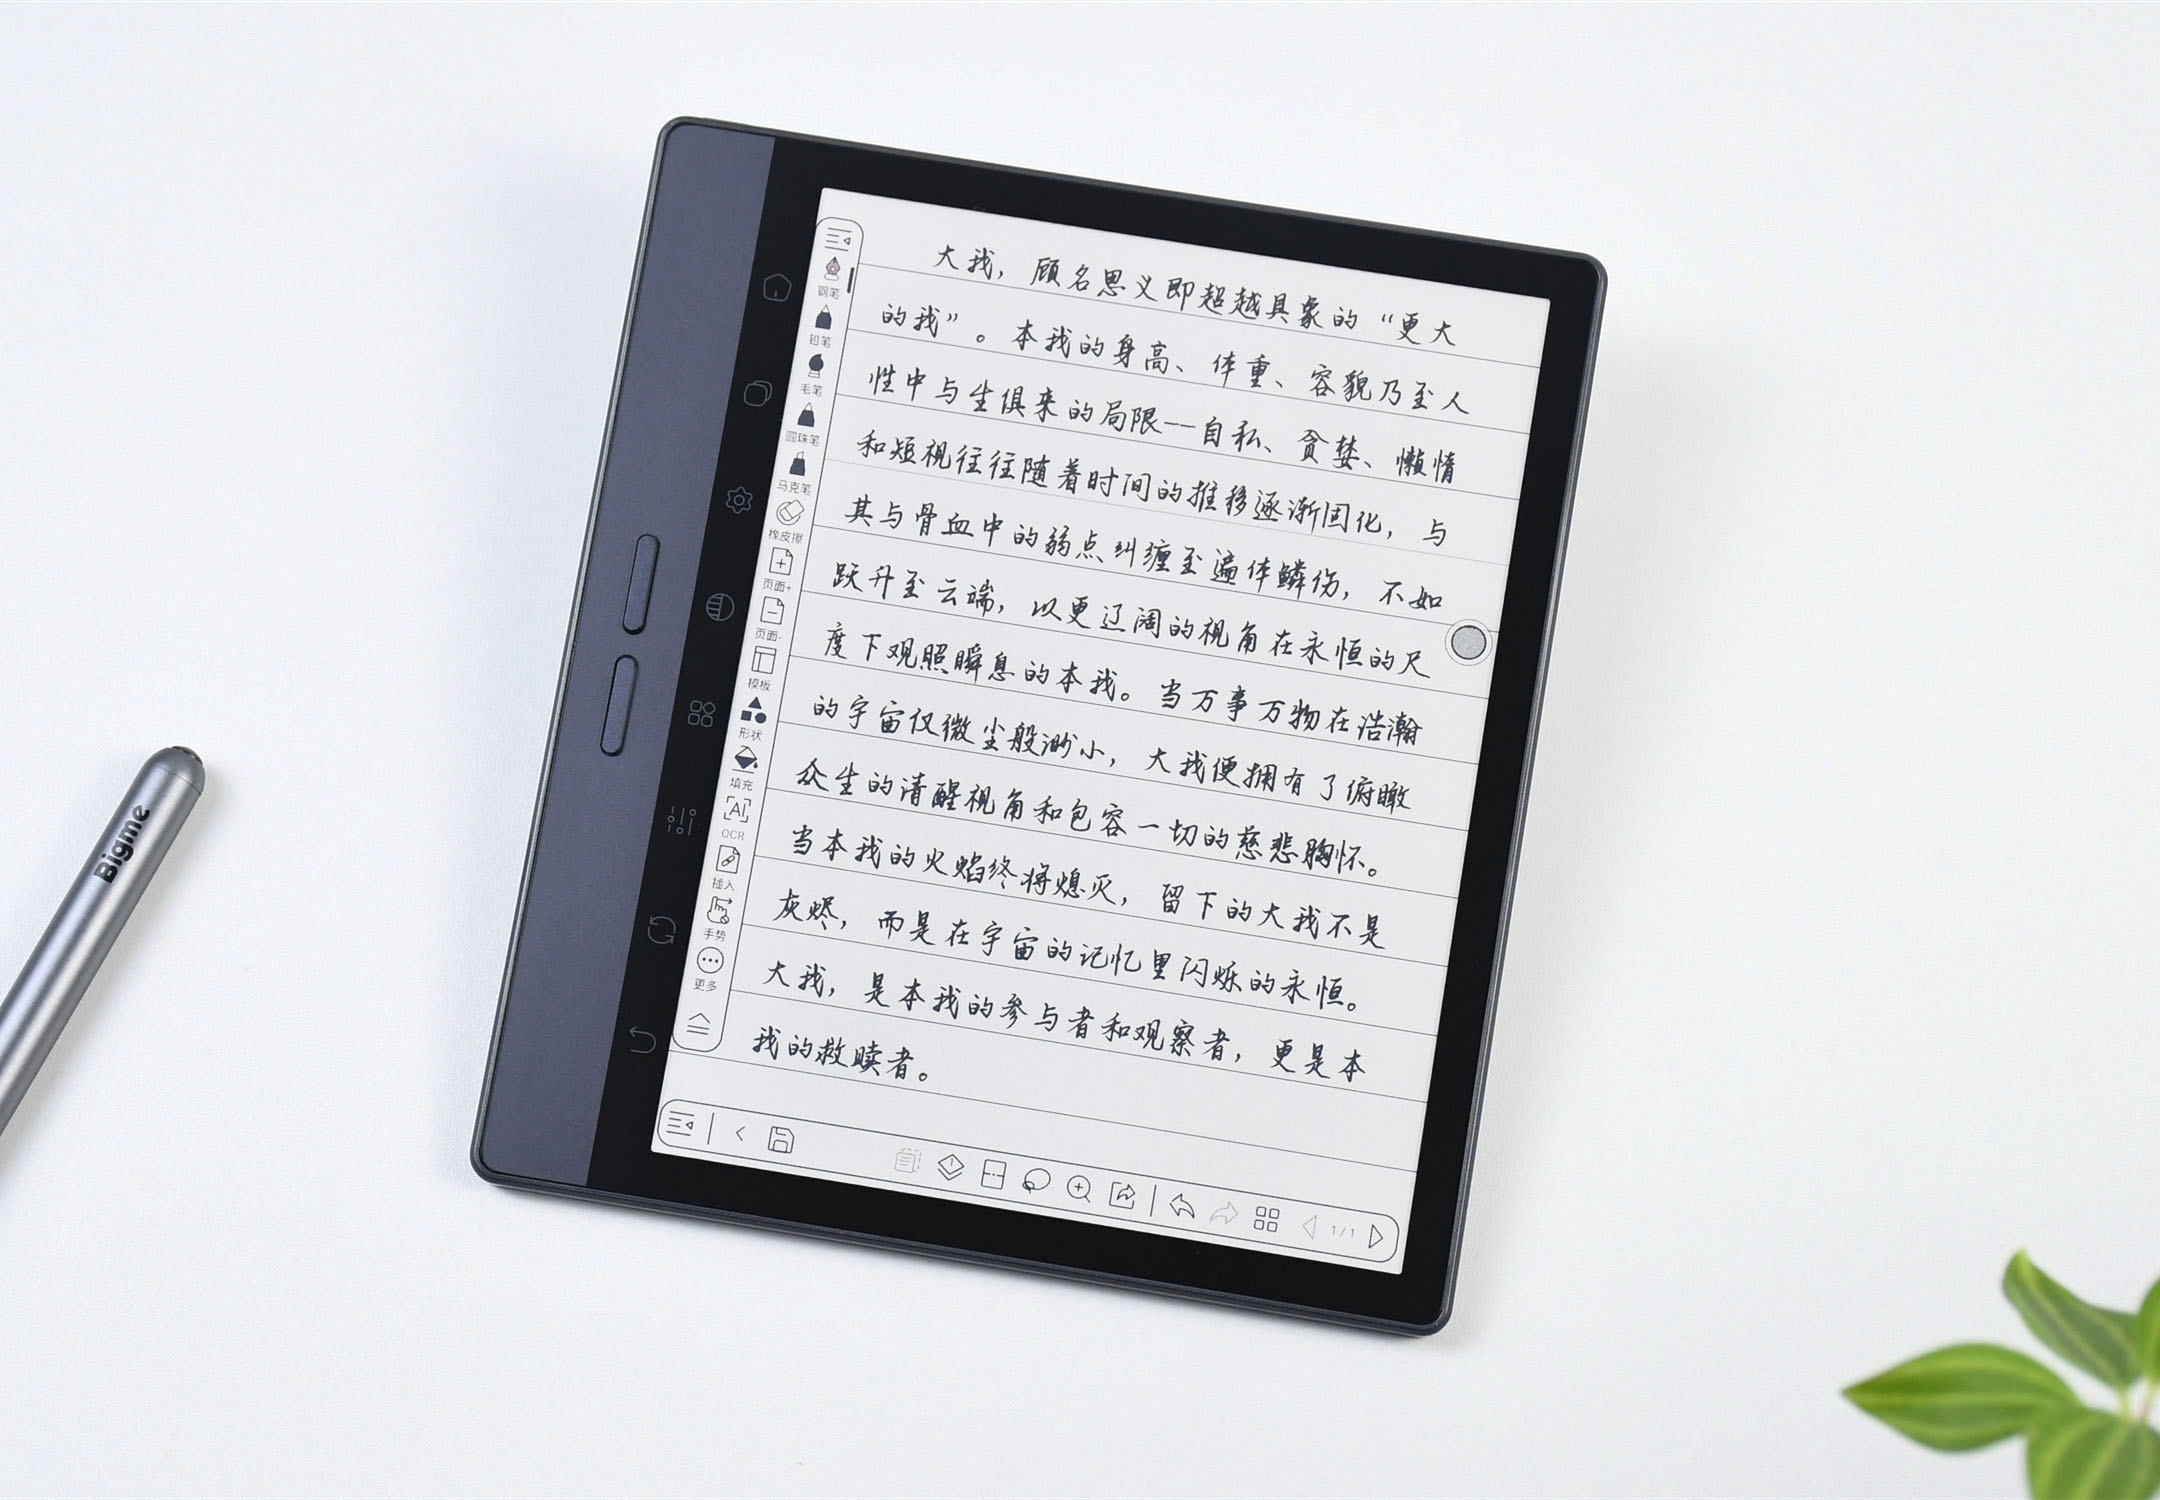 大我，顾名思义即超越具象的“更大
的我”。本我的身高、体重、容貌乃至人
性中与生俱来的局限--自私、贪婪、懒惰
和短视往往随着时间的推移逐渐固化，与
其与骨血中的弱点纠缠至遍体鳞伤，不如
跃升至云端，以更辽阔的视角在永恒的尺
度下观照瞬息的本我。当万事万物在浩瀚
的宇宙仅微尘般渺小，大我便拥有了俯瞰
众生的清醒视角和包容一切的慈悲胸怀。
当本我的火焰终将熄灭，留下的大我不是
灰烬，而是在宇宙的记忆里闪烁的永恒。
大我，是本我的参与者和观察者，更是本
我的救赎者。
钢笔
铅笔
毛笔
圆珠笔
马克笔
橡皮擦
页面+
页面-
模板
形状
填充
AI
OCR
插入
手势
更多
1/1
Bigme